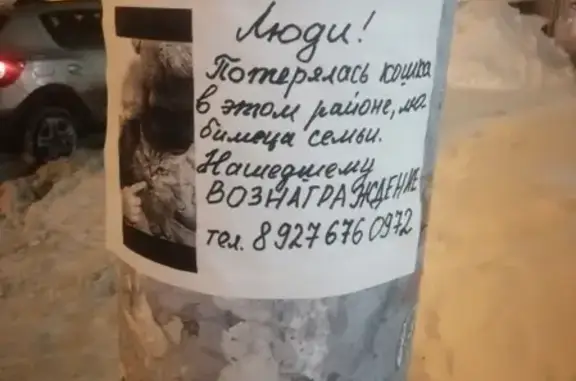 Люди!
Потерялась кошка
в этом районе, лю
бимица семьи.
Нашедшему
ВОЗНАГРАЖДЕНИЕ
тел. 8 927 676 0972